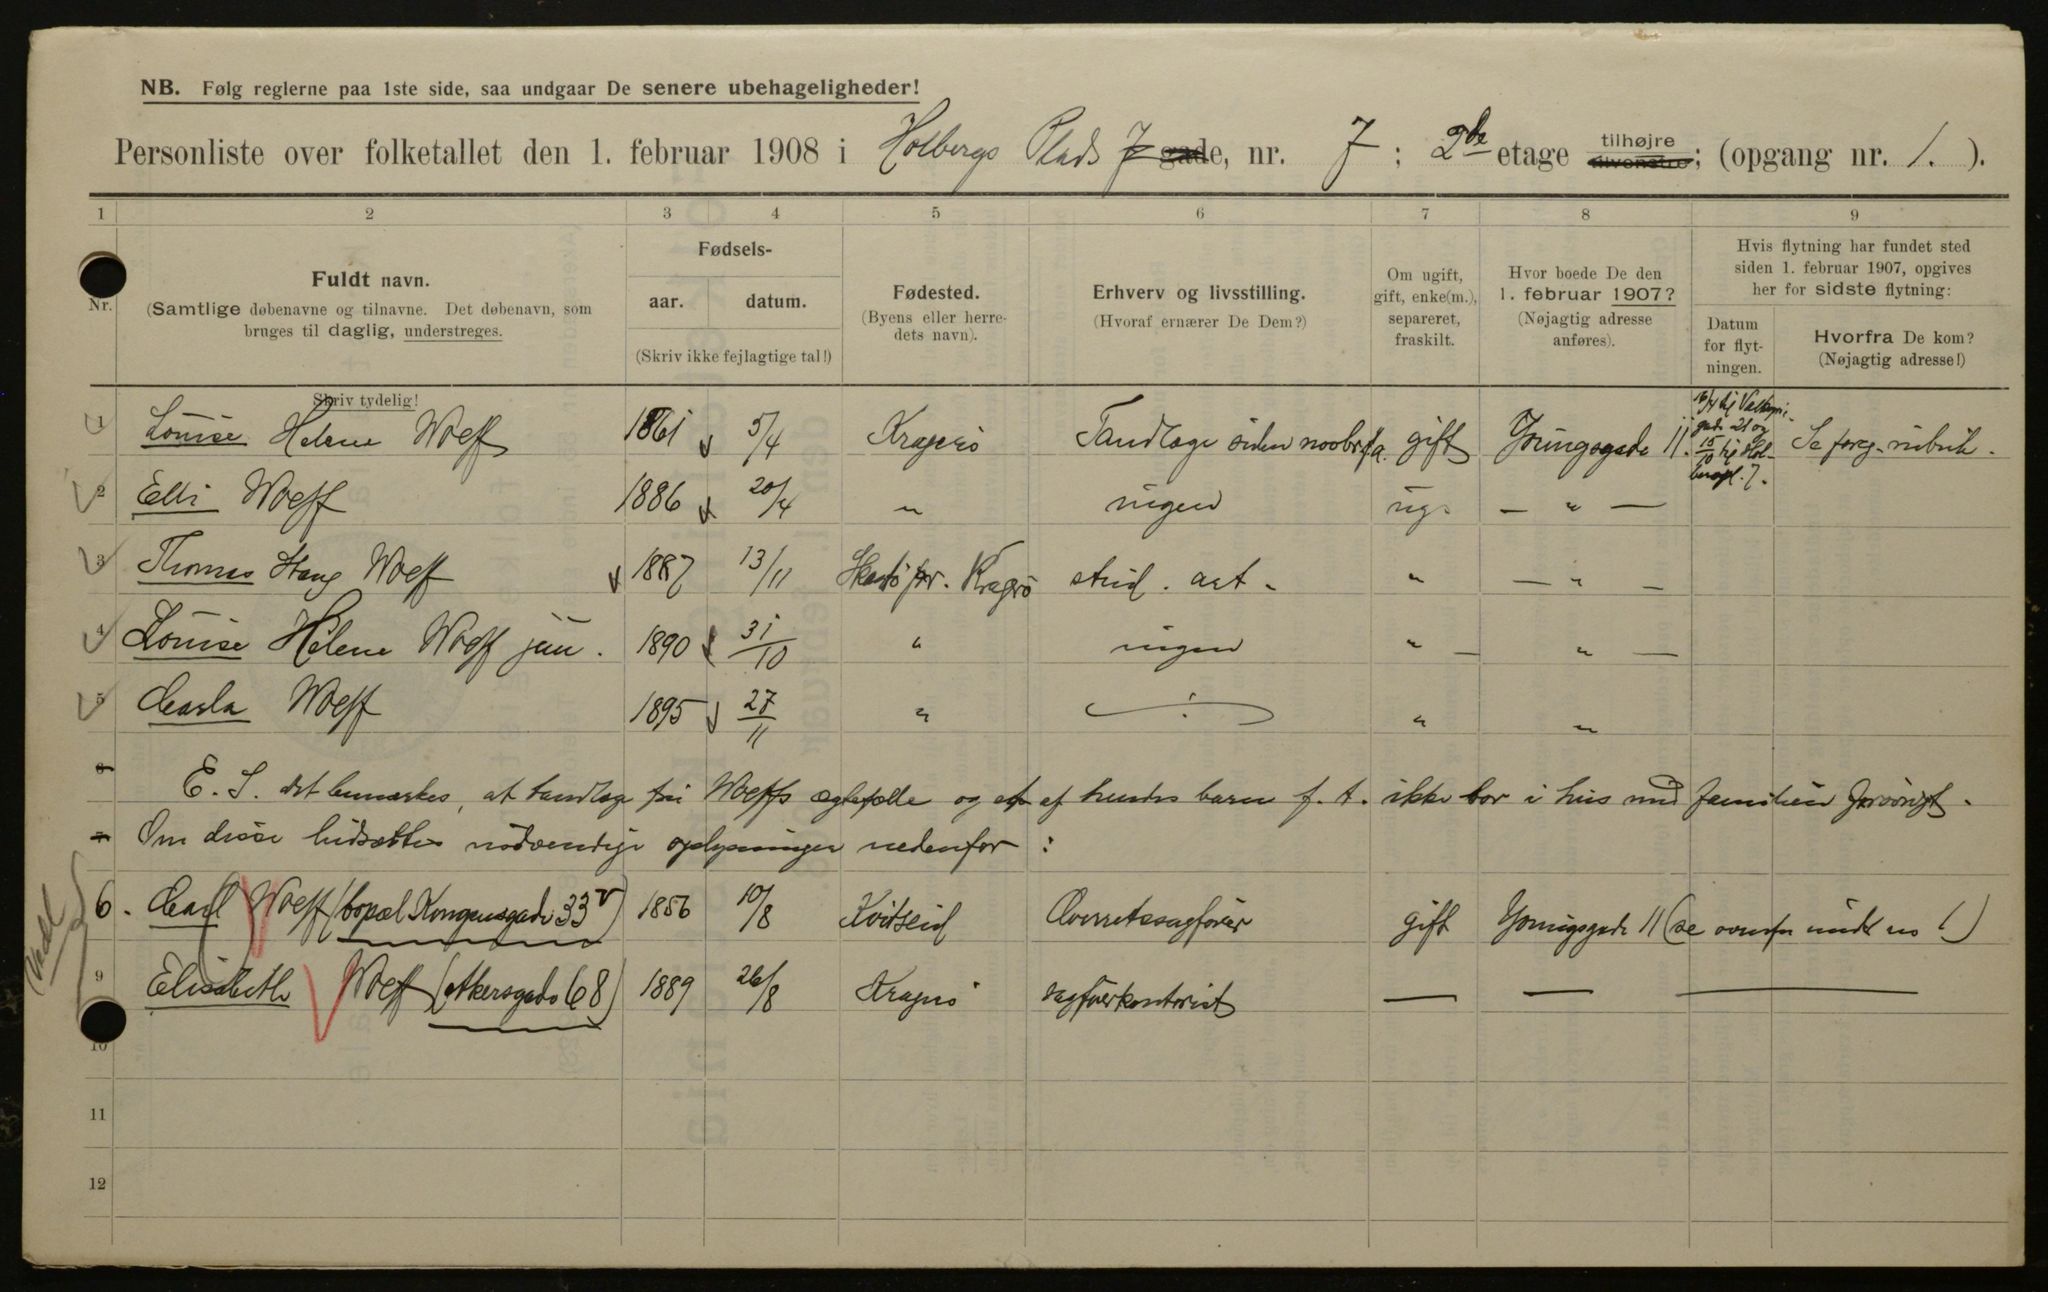 NB. Følg reglerne paa 1ste side, saa undgaar De senere ubehageligheder!
Personliste over folketallet den 1. februar 1908 i Holbergs Plads 7 gade, nr. 7; 2de etage tilhøjre tilvenstre; (opgang nr. 1.).
1 2 3 4 5 6 7 8 9
Nr.
Fuldt navn.
(Samtlige døbenavne og tilnavne. Det døbenavn, som
bruges til daglig, understreges.
Skriv tydelig!
Fødsels-
aar. datum.
(Skriv ikke fejlagtige tal!)
Fødested.
(Byens eller herre-
dets navn).
Erhverv og livsstilling.
(Hvoraf ernærer De Dem?)
Om ugift,
gift, enke(m.),
separeret,
fraskilt.
Hvor boede De den
1. februar 1907?
(Nøjagtig adresse
anføres).
Hvis flytning har fundet sted
siden 1. februar 1907, opgives
her for sidste flytning:
Datum
for flyt-
ningen.
Hvorfra De kom?
(Nøjagtig adresse!)
1 Louise Helene Woeff 1861 5/4 Kragerø Tandlæge siden gift Youngsgade 11. Se forg. rubrik.
2 Elli Woeff 1886 20/4 " ingen ug. — " —
3 Thomas Woeff 1887 13/11 Kragerø stud. art. " — " —
4 Louise Helene Woeff jun. 1890 31/10 " ingen " — " —
5 Carla Woeff 1895 27/11 " ÷ " "
6 E. S. det bemærkes, at tandlæge fru Woeffs ægtefælle og et af hendes barn f. t. ikke bor i hus med familien forøvrigt.
7 Om disse hidsættes nødvendige oplysninger nedenfor:
6. Carl Woeff (bopæl Kongensgade 33 v) 1856 10/8 Kvitseid Overretssagfører gift Youngsgade 11 (se ovenfor under no 1)
9 Elisabeth Woeff (Akersgade 68) 1889 26/8 Kragerø sagførerkontorist — — —
10
11
12